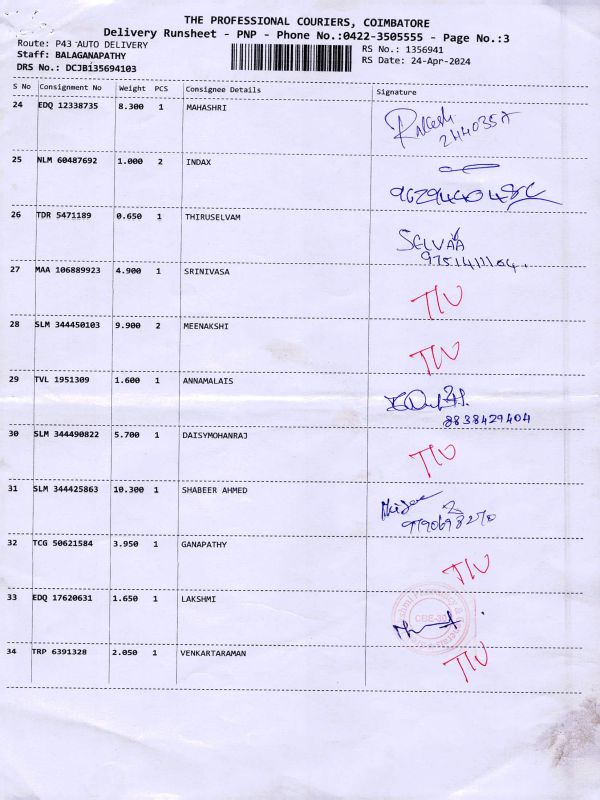 THE PROFESSIONAL COURIERS, COIMBATORE
Delivery Runsheet - PNP - Phone No.:0422-3505555 - Page No.:3
Route: P43 AUTO DELIVERY
RS No.: 1356941
Staff: BALAGANAPATHY
RS Date: 24-Apr-2024
DRS No.: DCJB135694103
S No Consignment No Weight PCS Consignee Details Signature
24 EDQ 12338735 8.300 1 MAHASHRI Rakesh
25 NLM 60487692 1.000 2 INDAX
26 TDR 5471189 0.650 1 THIRUSELVAM SELVAA
27 MAA 106889923 4.900 1 SRINIVASA TIU
28 SLM 344450103 9.900 2 MEENAKSHI TIU
29 TVL 1951309 1.600 1 ANNAMALAIS
8838429404
30 SLM 344490822 5.700 1 DAISYMOHANRAJ TIU
31 SLM 344425863 10.300 1 SHABEER AHMED
9790698270
32 TCG 50621584 3.950 1 GANAPATHY TIU
33 EDQ 17620631 1.650 1 LAKSHMI
CBE-30
34 TRP 6391328 2.050 1 VENKARTARAMAN TIU